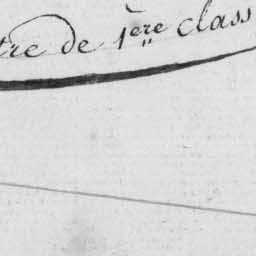 tre de 1ère class